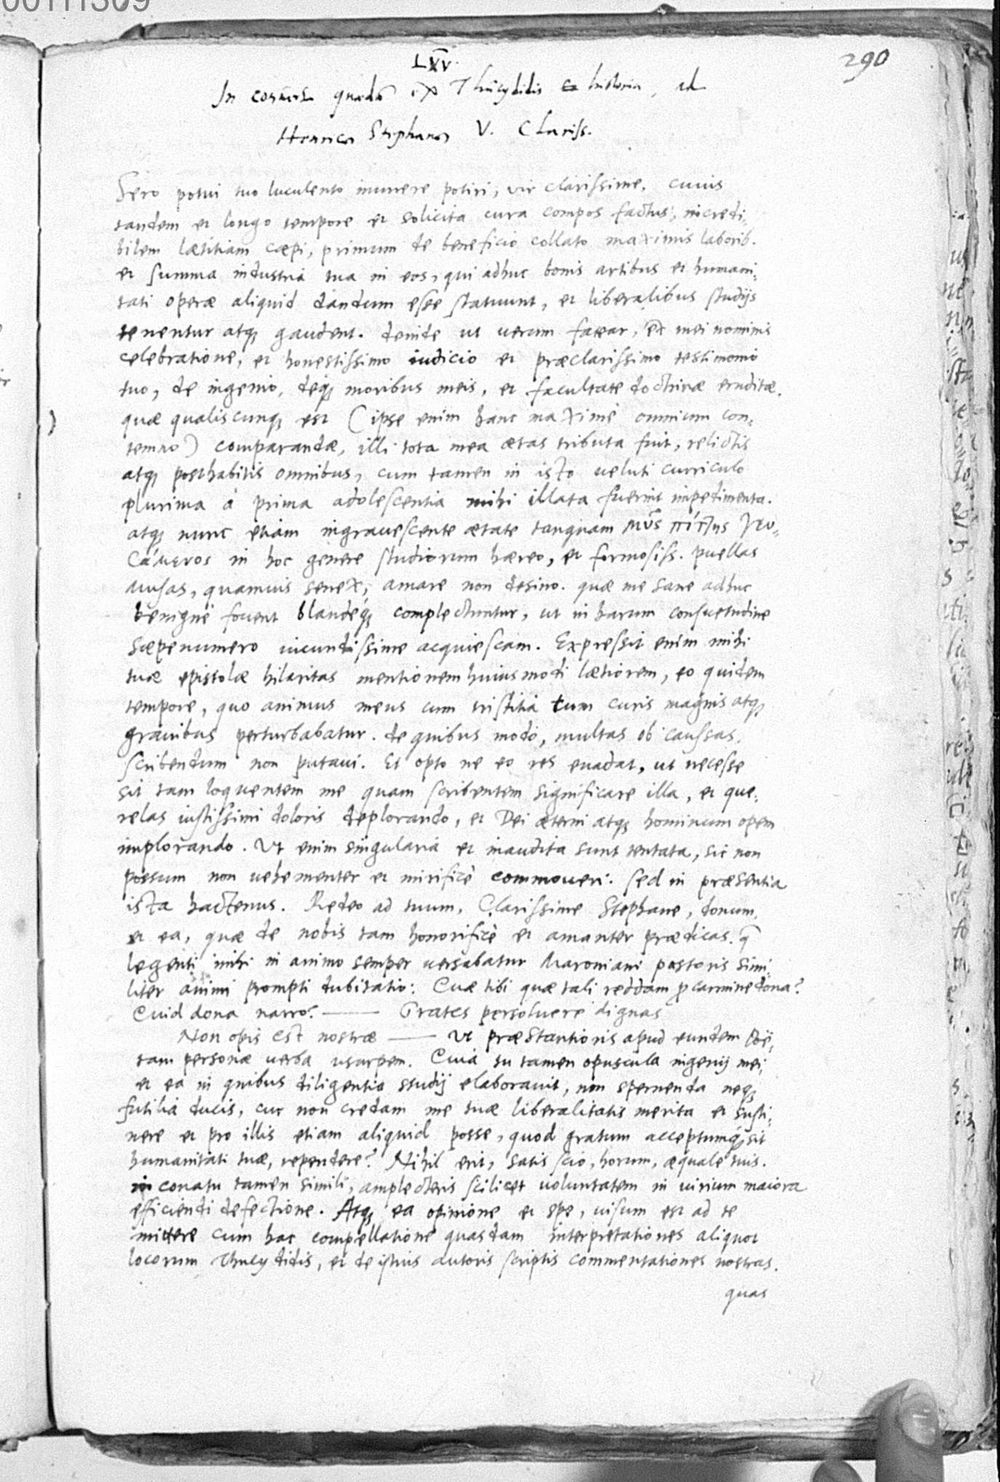 290
LXV.
In conuersa quædam ex Thucydidis historia, ad
Henricum Stephanum V. Clariss.
Sero potui tuo luculento munere potiri, vir clarissime. cuius
tandem et longo tempore et solicita cura compos factus, incredi-
bilem lætitiam cæpi, primum de beneficio collato maximis laborib.
et summa industria tua in eos, qui adhuc bonis artibus et humani-
tati operæ aliquid dandum esse statuunt, et liberalibus studijs
tenentur atq; gaudent. deinde ut uerum fatear, et mei nominis
celebratione, et honestissimo iudicio et præclarissimo testimonio
tuo, de ingenio, deq; moribus meis, et facultate doctrinæ eruditæ,
quæ qualiscunq; est (ipse enim hanc maximè omnium con-
temno) comparandæ, illi tota mea ætas tributa fuit, relictis
atq; posthabitis omnibus, cum tamen in isto ueluti curriculo
plurima à prima adolescentia mihi illata fuerint impedimenta.
atq; nunc etiam ingrauescente ætate tanquam μῦς πίττης γευ-
σάμενος in hoc genere studiorum hæreo, et formosiss. puellas
Musas, quamuis senex, amare non desino. quæ me sane adhuc
benignè fouent blandeq; complectuntur, ut in harum consuetudine
sæpenumero iucundissime acquiescam. Expressit enim mihi
tuæ epistolæ hilaritas mentionem huiusmodi lætiorem, eo quidem
tempore, quo animus meus cum tristitia tum curis magnis atq;
grauibus perturbabatur. de quibus modo, multas ob caussas,
scribendum non putaui. Et opto ne eo res euadat, ut necesse
sit tam loquentem me quam scribentem significare illa, et que-
relas iustissimi doloris deplorando, et Dei æterni atq; hominum opem
implorando. Ut enim singularia et inaudita sunt tentata, sic non
possum non uehementer et mirificè commoueri. Sed in præsentia
ista hactenus. Redeo ad tuum, Clarissime Stephane, donum,
et ea, quæ de nobis tam honorificè et amanter prædicas. q
legenti mihi in animo semper uersabatur Maroniani pastoris simi-
liter animi prompti dubitatio: Quæ tibi quæ tali reddam p carmine dona?
Quid dona narro? —— Grates persoluere dignas
Non opis est nostræ —— Ut præstantioris apud eundem Poë-
tam personæ uerba usurpem. Quia tu tamen opuscula ingenij mei
et ea in quibus diligentia studij elaborauit, non spernenda neq;
futilia ducis, cur non credam me tuæ liberalitatis merita et susti-
nere et pro illis etiam aliquid posse, quod gratum acceptumq; sit
humanitati tuæ, rependere? Nihil erit, satis scio, horum, æquale tuis.
in conatu tamen simili, amplecteris scilicet uoluntatem in uirium maiora
efficiendi defectione. Atq; ea opinione et spe, uisum est ad te
mittere cum hac compellatione quasdam interpretationes aliquot
locorum Thucydidis, et de istius autoris scriptis commentationes nostras.
quas